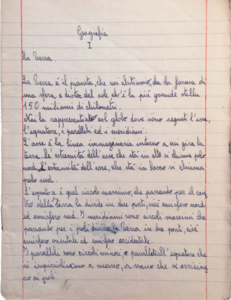 Geografia
I
La Terra.
La Terra è il pianeta, che noi abitiamo, ha la forma di
una sfera, e dista dal sole, ch'è la più grande stella
150 milioni di chilometri.
Noi la rappresentiamo sul globo dove sono segnati l'asse,
l'equatore, i paralleli ed i meridiani.
L'asse è la linea immaginaria intorno a cui gira la
terra, le estremità dell'asse, che sta in alto si chiama polo
nord, l'estremità dell'asse, che sta in basso si chiama
polo sud.
L'equatore è quel circolo massimo, che passando per il
della terra la divide in due parti, cioè emisfero nord
ed emisfero sud. I meridiani sono circoli massimi che
passando per i poli la terra in due parti, cioè
emisfero orientale ed emisfero occidentale.
I paralleli sono circoli minori e paralleli all'equatore che
si impiccoliscono a mano, a mano che si avvicinano
ai poli